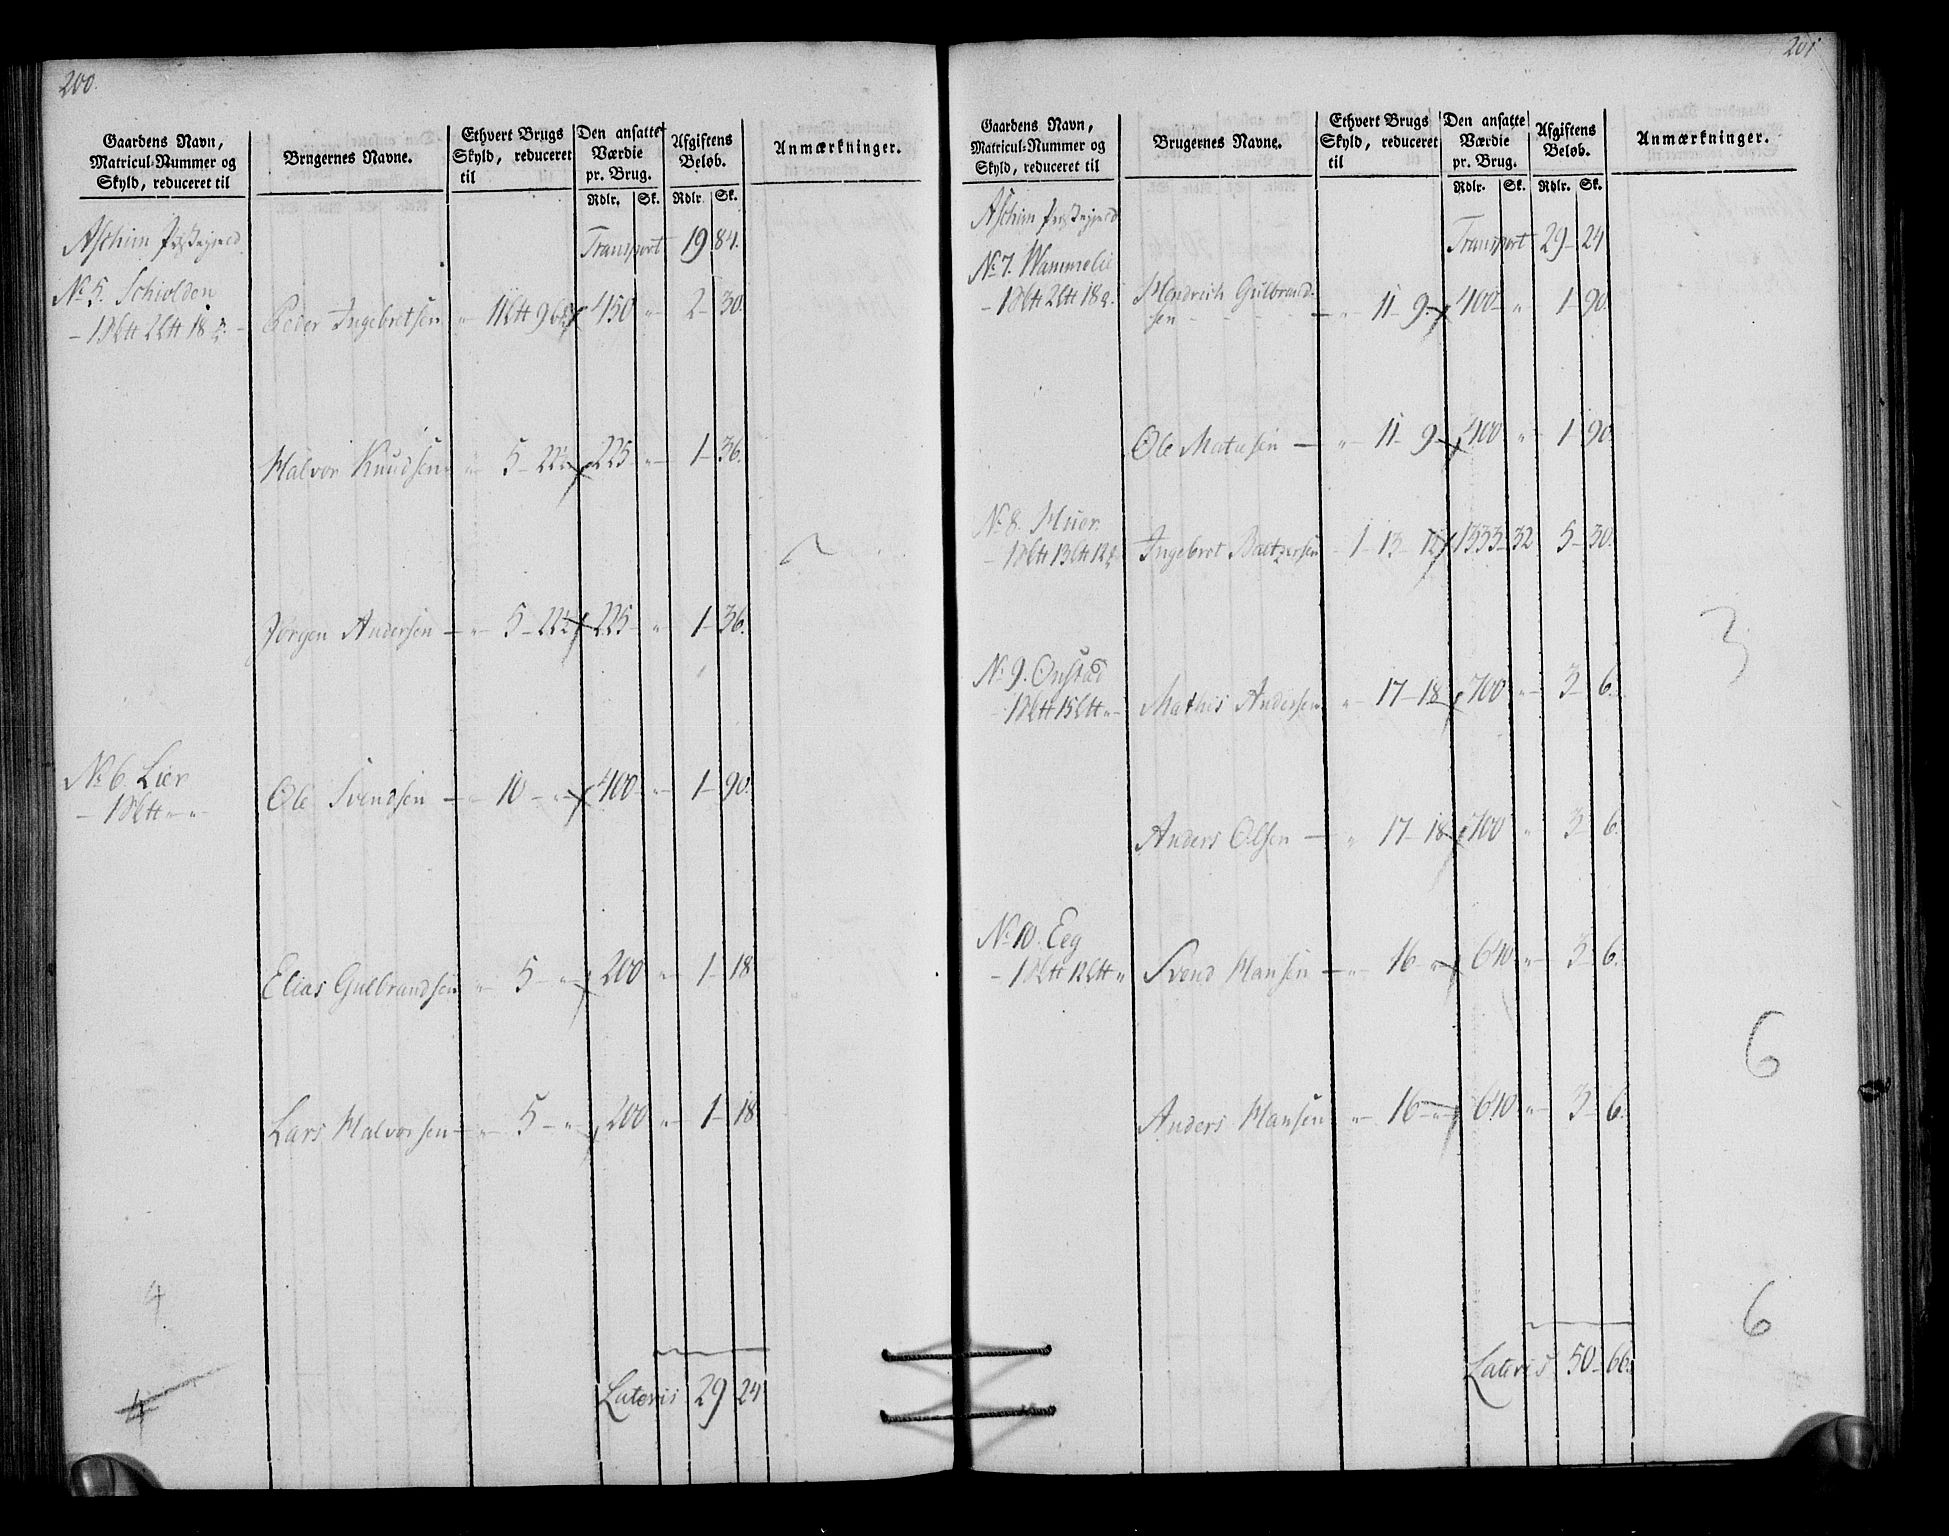 200.
Gaardens Navn, Matricul-Nummer og Skyld, reduceret til
Brugernes Navne.
Ethvert Brugs Skyld, reduceret til
Den ansatte Værdie pr. Brug.
Afgiftens Beløb.
Anmærkninger.
Rdlr. Sk. Rdlr. Sk.
Aschim
Transport 19 84.
No 5. Schiolden
- 1 2 18
Peder Ingebretsen " 11 9 450 " 2 - 30.
Halvor Knudsen " 5 - 22½ 225 " 1 - 36.
Jørgen Andersen - " 5 - 22½ 225 " 1 - 36.
No 6. Lier
- 1 " - "
Ole Svendsen - " 10 - " 400 " 1 - 90.
Elias Gulbrandsen " 5 - " 200 " 1 - 18
Lars Halvorsen - " 5 - " 200 " 1 - 18
4
4
Lateris 29 24
201
Gaardens Navn, Matricul-Nummer og Skyld, reduceret til
Brugernes Navne.
Ethvert Brugs Skyld, reduceret til
Den ansatte Værdie pr. Brug.
Afgiftens Beløb.
Anmærkninger.
Rdlr. Sk. Rdlr. Sk.
Aschim
Transport 29 - 24
No 7.
- 1 2 18
Hendrich Gulbrand-
sen - " 11 - 9 400 " 1 - 90
Ole - " 11 - 9 400 " 1 - 90.
No 8. Huer
- 1 13 12
Ingebret Baltzersen - 1 - 13 - 12 1333 - 32 5 - 30.
No 9. Onstad
- 1 15 " -
Mathis Andersen " 17 - 18 700 " 3 - 6.
Anders Olsen - " 17 - 18 700 " 3 - 6.
No 10. Eeg
- 1 12 "
Svend Hansen - " 16 - " 640 " 3 - 6.
Anders Hansen " 16 - " 640 " 3 - 6.
3
6
6
Lateris 50 - 66.